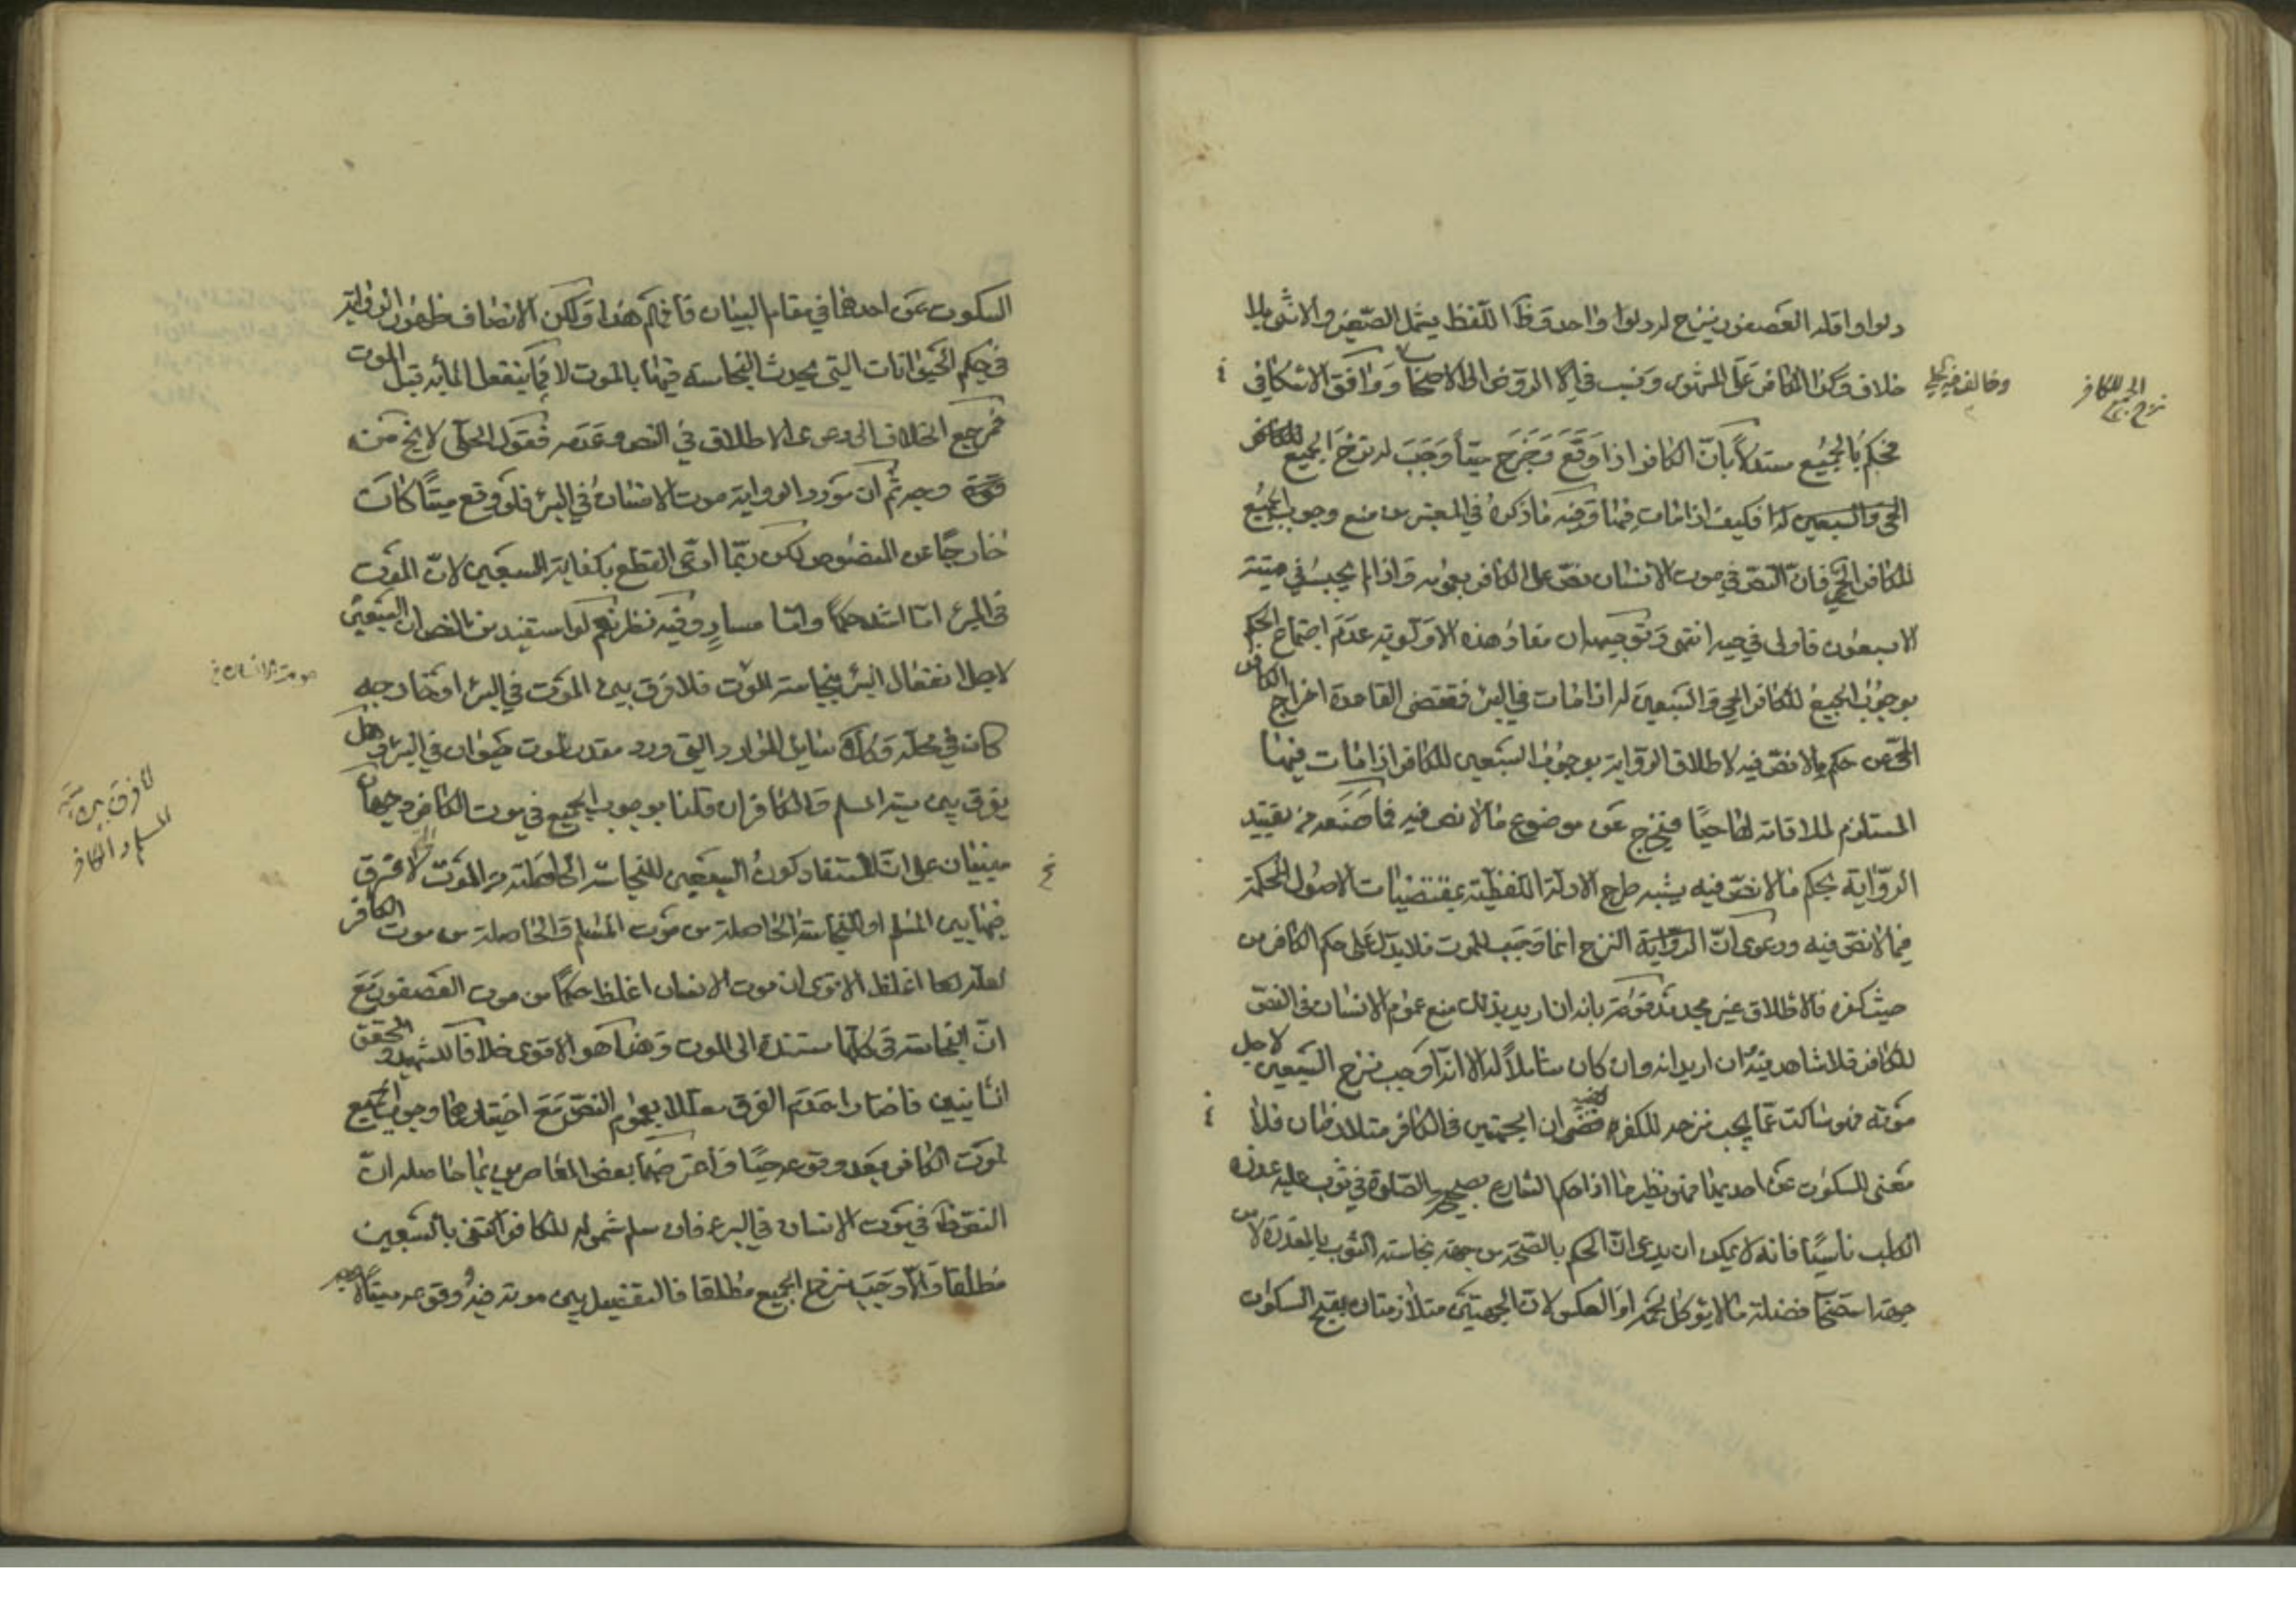 دلوا واقله العصفور ينزح له دلوا واحد وظ اللفظ يشمل الصغير والانثى بلا
خلاف وكذا الكافر على المشهور ونسب في الى الاصحاب ووافق الاشكال في
وخالف فيه الحلي
نزح الجميع للكافر
فحكم بالجميع مستدلا بان الكافر اذا وقع وخرج حيا وجب له نزح الجميع
الحي والسبعين له فكيف اذا مات فيها وفيه ما ذكره في المعتبر من منع وجوب الجميع
للكافر الحي فان النص في موت الانسان نص على الكافر بعمومه واذا لم يجب في ميتته
الا سبعون فاولى في حيه انتهى وتوجيهه ان مفاد هذه الاولوية عدم اجتماع الحكم
بوجوب الجميع للكافر الحي والسبعين له اذا مات في البئر فمقتضى القاعدة اخراج الكافر
الحي عن حكم ما لا نص فيه لاطلاق الرواية بوجوب السبعين للكافر اذا مات فيها
المستلزم لملاقاته لها حيا فيخرج عن موضوع ما لا نص فيه فما صنعه من تقييد
الرواية بحكم ما لا نص فيه يشبه طرح الادلة اللفظية بمقتضيات الاصول المحكمة
فيما لا نص فيه ودعوى ان الرواية النزح انما وجب للموت فلا يدل على حكم الكافر من
حيث كفره فالاطلاق غير مجد مدفوعة بانه ان اريد بذلك منع عموم الانسان في النص
للكافر فلا شاهد فيه ان اريد انه وان كان شاملا له الا انه اوجب نزح السبعين لاجل
موته فهو ساكت عما يجب نزحه للكفر ففيه ان الجهتين في الكافر متلازمتان فلا
معنى للسكوت عن احديهما فهو نظير ما اذا حكم الشارع بصحة الصلوة في ثوب عليه عذرة
الكلب ناسيا فانه لا يمكن ان يدعى ان الحكم بالصحة من جهة نجاسة الثوب بالعذرة لا من
جهة استصحاب فضلة ما لا يؤكل لحمه او العكس لان الجهتين متلازمتان يقبح السكوت
السكوت عن احدهما في مقام البيان فافهم هذا ولكن الانصاف ظهور الرواية
في حكم الحيوانات التي يحدث النجاسة فيها بالموت لا فيما ينفعل الماء به قبل الموت
فمرجع الخلاف الى دعوى الاطلاق في النص وعدمه فقول الحلي لا يخ من
قوة وجه ثم ان مورد الرواية موت الانسان في البئر فلو وقع ميتا كان
خارجا عن المنصوص لكن ربما ادعى القطع بكفاية السبعين لان الموت
في البئر اما اشد حكما واما مساو وفيه نظر نعم لو استفيد من النص ان السبعين
لاجل انفعال البئر بنجاسة الموت فلا فرق بين الموت في البئر او خارجه
موت الانسان
كانه في محله وكذا سائر الموارد التي ورد مقدر لموت حيوان في البئر وهل
يفرق بين ميتة المسلم والكافر ان قلنا بوجوب الجميع في موت الكافر وجهان
لا فرق بين ميتة
المسلم والكافر
مبنيان على ان المستفاد كون السبعين للنجاسة الحاصلة من الموت لا فرق
فيها بين المسلم او للنجاسة الحاصلة من موت المسلم والحاصلة من موت الكافر
لعله لها اغلظ الا ترى ان موت الانسان اغلظ حكما من موت العصفور مع
ان النجاسة في كلها مستندة الى الموت وهذا هو الاقوى خلافا للشهيد والمحقق
الثانيين فاختارا عدم الفرق معللا بعموم النص مع اختيارهما وجوب الجميع
لموت الكافر بعد وقوعه حيا واعترضهما بعض المعاصرين بما حاصله ان
النص ظ في موت الانسان في البئر فان سلم شموله للكافر اكتفى بالسبعين
مطلقا والا وجب نزح الجميع مطلقا فالتفصيل بين موته فيه ووقوعه ميتا لا وجه